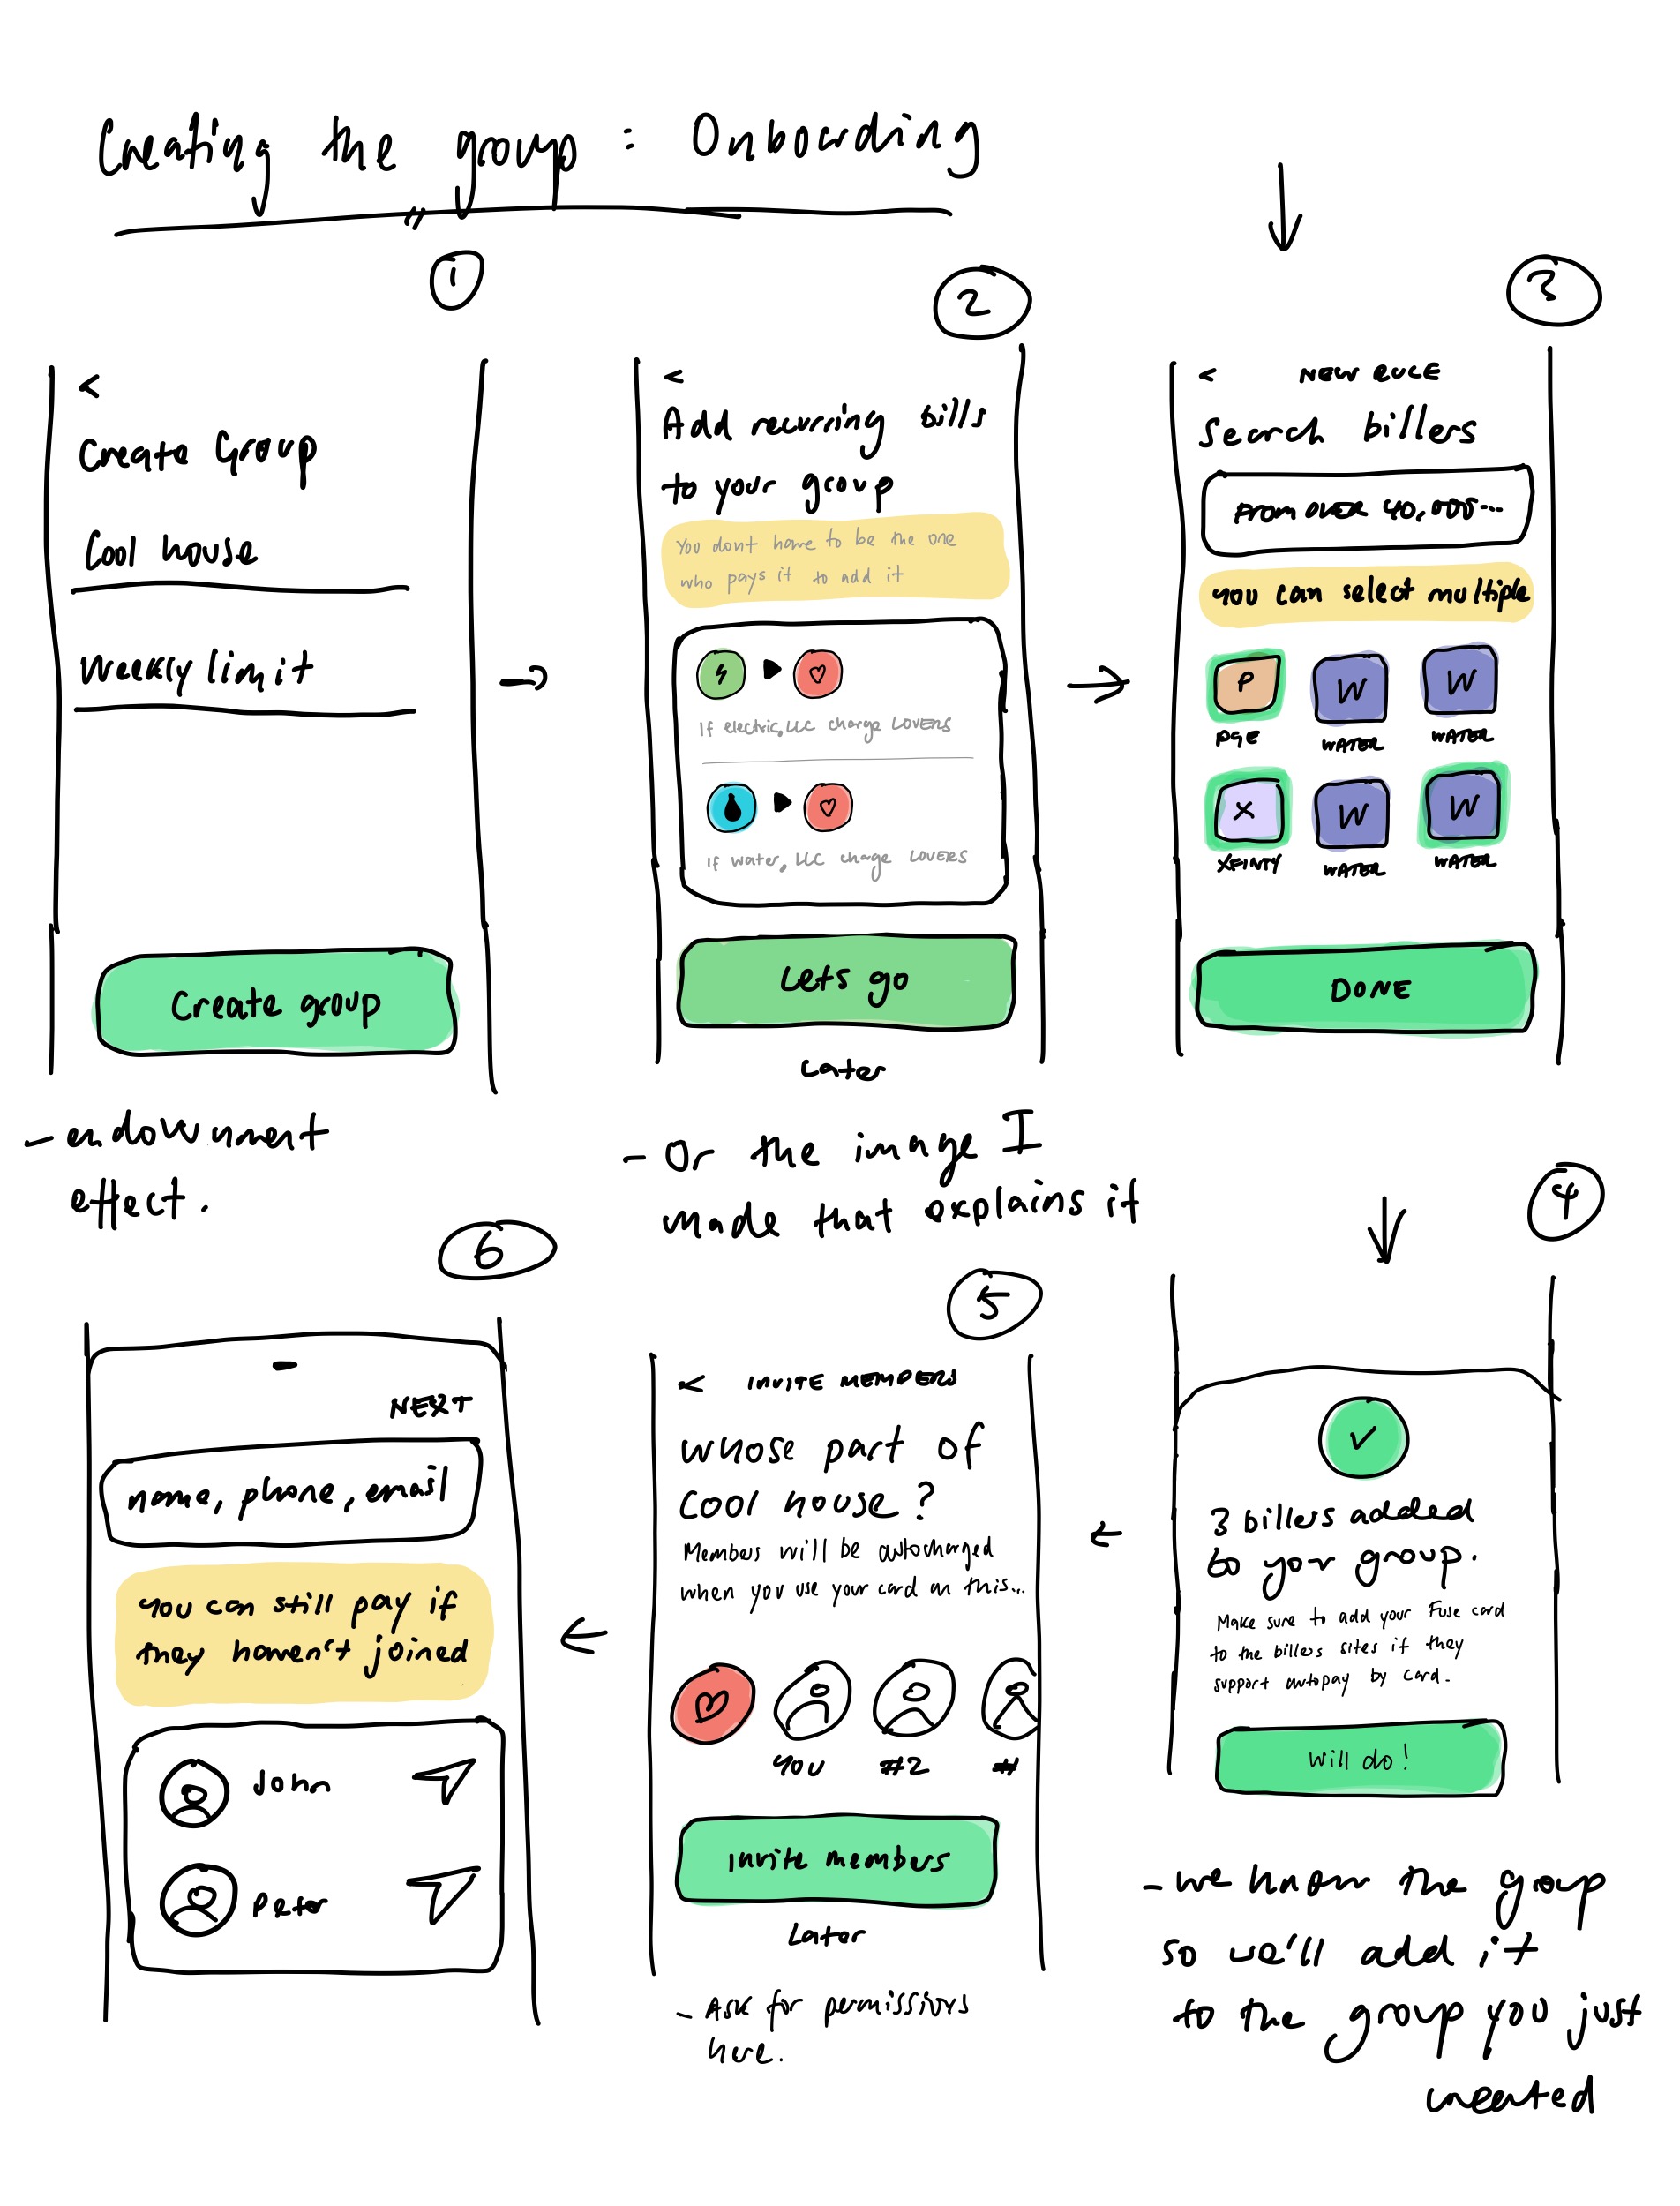 Creating the group : Onboarding
1
<
Create Group
Cool house
Weekly limit
Create group
- endownment
effect.
2
<
Add recurring bills
to your group
You dont have to be the one
who pays it to add it
If electric, LLC charge LOVERS
If water, LLC charge LOVERS
Lets go
Later
- Or the image I
made that explains it
3
< NEW RULE
Search billers
From over 40,000...
you can select multiple
P W W
PGE WATER WATER
X W W
XFINTY WATER WATER
DONE
4
3 billers added
to your group.
Make sure to add your Fuse card
to the billers sites if they
support autopay by card.
Will do!
- we know the group
so we'll add it
to the group you just
created
5
< INVITE MEMBERS
whose part of
Cool house?
Members will be autocharged
when you use your card on this...
YOU #2 #
Invite members
Later
- Ask for permissions
here.
6
NEXT
name, phone, email
you can still pay if
they haven't joined
John
Peter